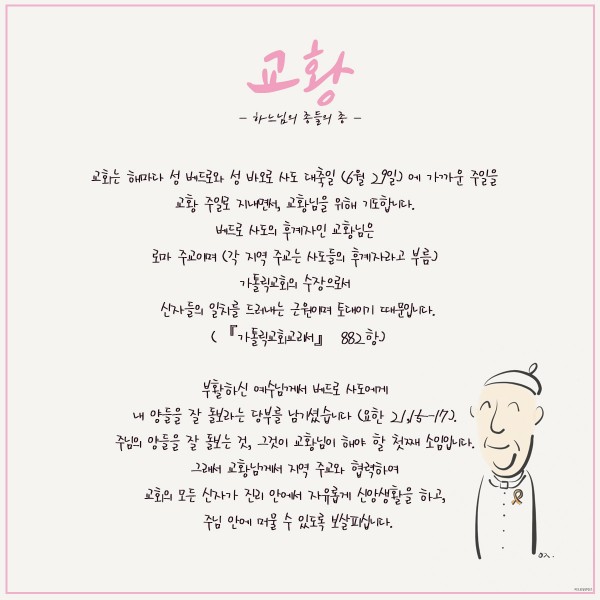 교황
- 하느님의 종들의 종 -
교회는 해마다 성 베드로와 성 바오로 사도 대축일 (6월 29일) 에 가까운 주일을
교황 주일로 지내면서, 교황님을 위해 기도합니다.
베드로 사도의 후계자인 교황님은
로마 주교이며 (각 지역 주교는 사도들의 후계자라고 부름)
가톨릭교회의 수장으로서
신자들의 일치를 드러내는 근원이며 토대이기 때문입니다.
( 『가톨릭교회교리서』 882항)
부활하신 예수님께서 베드로 사도에게
내 양들을 잘 돌보라는 당부를 남기셨습니다 (요한 21,15-17).
주님의 양들을 잘 돌보는 것, 그것이 교황님이 해야 할 첫째 소임입니다.
그래서 교황님께서 지역 주교와 협력하여
교회의 모든 신자가 진리 안에서 자유롭게 신앙생활을 하고,
주님 안에 머물 수 있도록 보살피십니다.